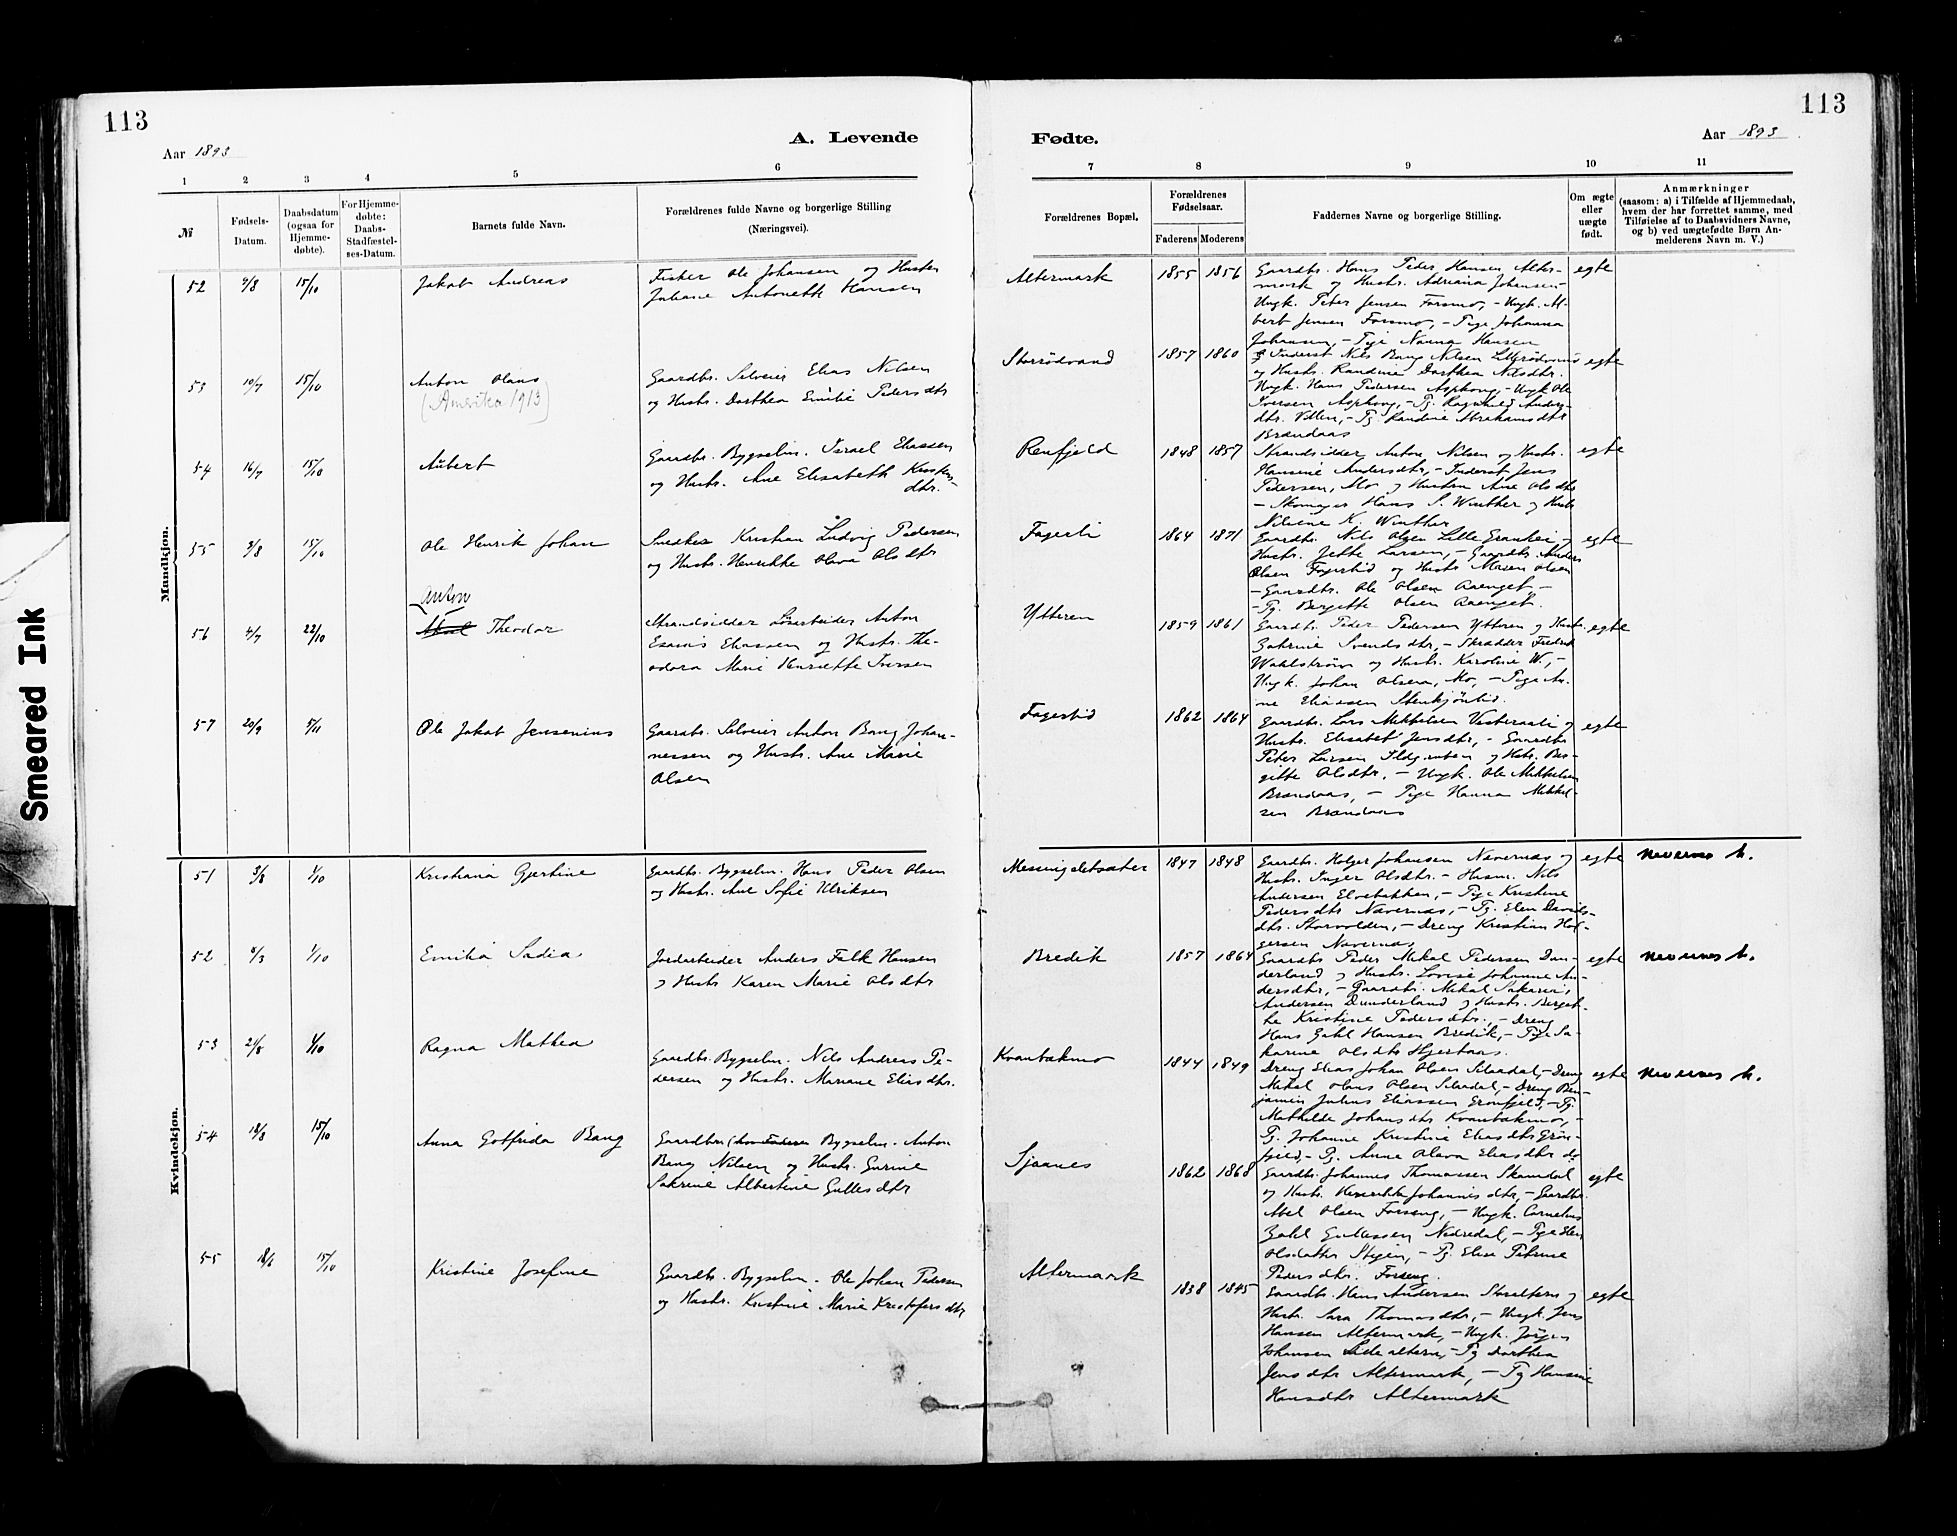 113
113
A. Levende
Fødte.
Aar 1893
Aar 1893
1 2 3 4 5 6
7 8 9 10 11
№
Fødsels-Datum.
Daabsdatum (ogsaa for Hjemme-døbte).
For Hjemme-døbte: Daabs-Stadfæstel-ses-Datum.
Barnets fulde Navn.
Forældrenes fulde Navne og borgerlige Stilling
(Næringsvei).
Forældrenes Bopæl.
Forældrenes Fødselsaar.
Faderens Moderens
Faddernes Navne og borgerlige Stilling.
Om ægte eller uægte født.
Anmærkninger
(saasom: a) i Tilfælde af Hjemmedaab,
hvem der har forrettet samme, med
Tilføielse af to Daabsvidners Navne,
og b) ved uægtefødte Børn An-
melderens Navn m. V.)
Mandkjøn.
52 15/10 Jakob Andreas
Fisker Ole Johansen og Hustru
Juliane Antonette Hansen
Altermark 1855 1856
Gaardbr. Hans Peder Hansen Alter-
mark og Hustr. Adriana Johansen -
Ungk. Peter Jensen Forsmo, - Ungk. Al-
bert Jensen Forsmo, - Pige Johanna
Johansen, - Pige Nanna Hansen
egte
53 10/7 15/10 Anton Olaus
(Amerika 1913)
Gaardbr. Selveier Elias Nilsen
og Hustr. Dorthea Emilie Pedersdtr
Storrödvand 1857 1860
Inderst Nils Bang Nilsen
og Hustr. Randine Dorthea Nilsdtr.
Ungk. Hans Pedersen Asphaug, - Ungk Ole
Iversen Asphaug, - Pg. Ragnhild Anders-
dtr. - Pg. Randine Abrahamsdtr
Brændaas
egte
54 16/7 15/10 Aubert
Gaardbr. Bygselm. Israel Eliassen
og Hustr. Ane Elisabeth
dtr.
Renfjeld 1848 1857
Strandsidder Anton Nilsen og Hustr.
Hansine Andersdtr, - Inderst Jens
Pedersen, Mo og Hustru Ane Olsdtr
- Skomager Hans S. Winther og Hustr
Nilsine K. Winther
egte
55 3/8 15/10 Ole Henrik Johan
Snedker Kristian Ludvig Pedersen
og Hustr. Henrikke Olava Olsdtr
Fagerli 1864 1871
Gaardbr. Nils Olsen Lille Granhei og
Hustr. Jette Larsen, - Gaardbr. Anders
Olsen Fagerlid og Hustr Maren Olsen
- Gaardbr. Ole Olsen Aaenget, -
- Pg. Bergitte Olsen Aaenget.
egte
Anton
56 4/7 22/10 Theodor
Strandsidder Løsarbeider Anton
Esaias Eliassen og Hustr. The-
odora Marie Henriette Iversen
Ytteren 1859 1861
Gaardbr. Peder Pedersen Ytteren og Hustr.
Svendsdtr, - Skrædder Fredrik
Wahlstrøm og Hustr. Karoline W, -
Ungk. Johan Olsen, Mo, - Pige An-
ne Eliassen
egte
57 20/9 5/11 Ole Jakob Jensenius
Gaardbr. Selveier Anton Bang Johan-
nessen og Hustr. Ane Marie
Olsen
Fagerlid 1862 1864
Gaardbr. Lars Mikkelsen Vesteraali og
Hustr. Elisabet Jensdtr, - Gaardbr
Peter Larsen Ildgruben og Hustr. Ber-
gitte Olsdtr, - Ungk. Ole Mikkelsen
Brændaas, - Pige Hanna Mikkel-
sen Brændaas
egte
Kvindekjøn.
51 3/8 1/10 Kristiana Gjertine
Gaardbr. Bygselm. Hans Peder Olsen
og Hustr. Ane Sofie Ulriksen
1847 1848
Gaardbr. Holger Johansen Nævernæs og
Hustr. Inger Olsdtr. - Husm. Nils
Andersen Elvebakken, - Pige Kristine
Pedersdtr Nævernæs, - Pg. Elen Davids-
dtr. Storvolden, - Dreng Kristian Hol-
gersen Nævernæs
egte
Nevernes k.
52 1/10 Emilia Sadia
Jordarbeider Anders Falk Hansen
og Hustr Karen Marie Olsdtr
Bredik 1857 1864
Gaardbr Peder Mikal Pedersen Dun-
derland og Hustr. Lovise Johanne An-
dersdtr, - Gaardbr. Mikal Sakarias
Andersen Dunderland og Hustr. Berget-
he Kristine Pedersdtr., - Dreng
Hans Dahl Hansen Bredik, - Pige Sa-
karine Olsdtr Hjertaas.
egte
Nevernes k.
53 21/8 1/10 Ragna Mathea
Gaardbr. Bygselm. Nils Andreas Pe-
dersen og Hustr. Mariane Eliasdtr.
Kvanbakmo 1844 1849
Dreng Elias Johan Olsen - Dreng
Mikal Olaus Olsen - Dreng Ben-
jamin Julius Eliassen Grønfjeld, - Pg.
Mathilde Johansdtr Kvanbakmo, -
Pg. Johanne Kristine Eliasdtr Grøn-
fjeld, - Pg. Anne Olava Eliasdtr
egte
Nevernes k.
54 18/8 15/10 Anna Gotfrida Bang
Gaardbr Bygselm. Anton
Bang Nilsen og Hustr. Gurine
Sakrine Albertine Gullesdtr
Sjaanes 1862 1868
Gaardbr. Johannes Thomassen Skamdal
og Hustr. Henrikke Johannesdtr, - Gaardbr.
Abel Olsen Forseng, - Ungk. Cornelius
Zahl Gullessen Nedredal, - Pige
Olsdatter Stigen, - Pg. Elise Petrine
Pedersdtr. Forseng.
egte
55 15/10 Kristine Josefine
Gaardbr. Bygselm. Ole Johan Pedersen
og Hustr. Kristine Marie Kristofersdtr
Altermark 1838 1845
Gaardbr. Hans Andersen Storaltern og
Hustr. Sara Thomasdtr, - Ungk. Jens
Hansen Altermark, - Ungk. Jørgen
Johansen - Pg Dorthea
Jensdtr Altermark, - Pg Hansine
Hansdtr Altermark
egte
Smeared Ink